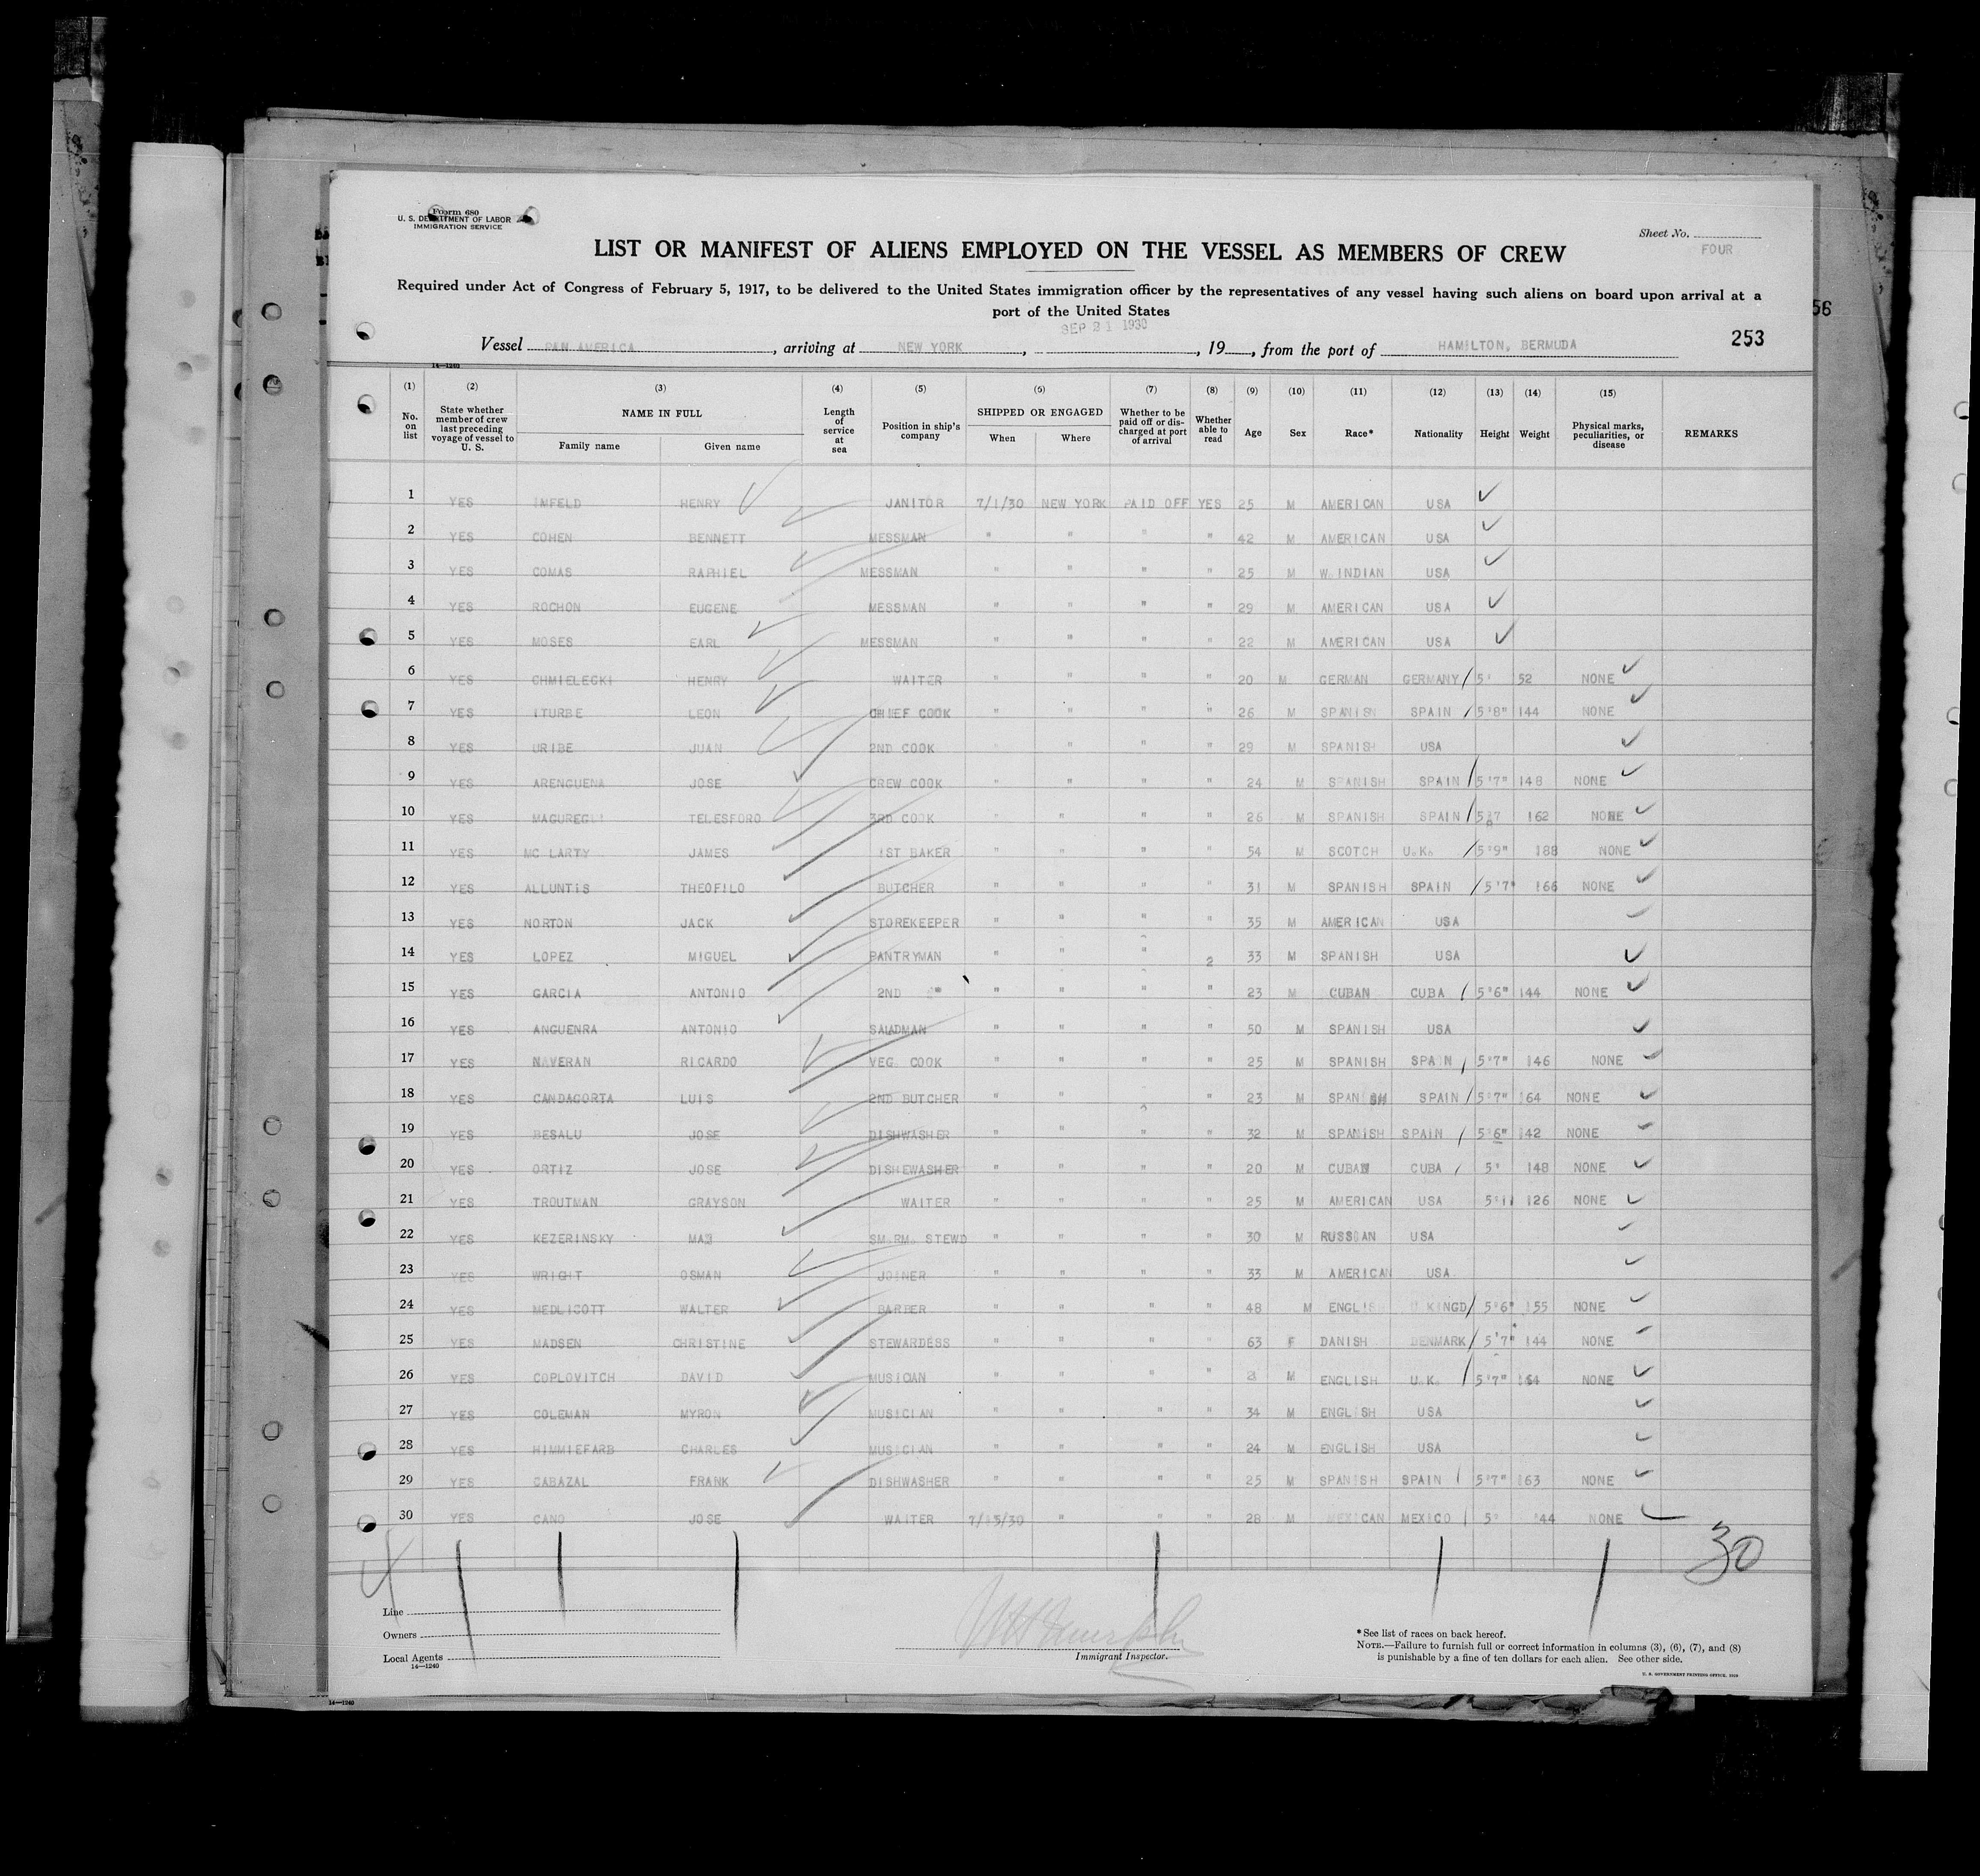 Form 680
U. S. DEPARTMENT OF LABOR
IMMIGRATION SERVICE
Sheet No.
FOUR
LIST OR MANIFEST OF ALIENS EMPLOYED ON THE VESSEL AS MEMBERS OF CREW
Required under Act of Congress of February 5, 1917, to be delivered to the United States immigration officer by the representatives of any vessel having such aliens on board upon arrival at a
port of the United States
56
SEP 21 1930
253
Vessel PAN AMERICA, arriving at NEW YORK, , 19 , from the port of HAMILTON, BERMUDA
14—1240
(1) (2) (3) (4) (5) (6) (7) (8) (9) (10) (11) (12) (13) (14) (15)
No. on list | State whether member of crew last preceding voyage of vessel to U. S. | NAME IN FULL | Family name | Given name | Length of service at sea | Position in ship's company | SHIPPED OR ENGAGED | When | Where | Whether to be paid off or discharged at port of arrival | Whether able to read | Age | Sex | Race* | Nationality | Height | Weight | Physical marks, peculiarities, or disease | REMARKS
1 YES IMFELD HENRY JANITOR 7/1/30 NEW YORK PAID OFF YES 25 M AMERICAN USA
2 YES COHEN BENNETT MESSMAN " " " " 42 M AMERICAN USA
3 YES COMAS RAPHIEL MESSMAN " " " " 25 M W. INDIAN USA
4 YES ROCHON EUGENE MESSMAN " " " " 29 M AMERICAN USA
5 YES MOSES EARL MESSMAN " " " " 22 M AMERICAN USA
6 YES CHMIELECKI HENRY WAITER " " " " 20 M GERMAN GERMANY 5' 52 NONE
7 YES ITURBE LEON CHIEF COOK " " " " 26 M SPANISH SPAIN 5'8" 144 NONE
8 YES URIBE JUAN 2ND COOK " " " " 29 M SPANISH USA
9 YES ARENGUENA JOSE CREW COOK " " " " 24 M SPANISH SPAIN 5'7" 148 NONE
10 YES MAGUREGUI TELESFORO 3RD COOK " " " " 26 M SPANISH SPAIN 5'7 162 NONE
11 YES MC LARTY JAMES 1ST BAKER " " " " 54 M SCOTCH U.K. 5'9" 188 NONE
12 YES ALLUNTIS THEOFILO BUTCHER " " " " 31 M SPANISH SPAIN 5'7" 166 NONE
13 YES NORTON JACK STOREKEEPER " " " " 35 M AMERICAN USA
14 YES LOPEZ MIGUEL PANTRYMAN " " " 2 33 M SPANISH USA
15 YES GARCIA ANTONIO 2ND " " " " " 23 M CUBAN CUBA 5'6" 144 NONE
16 YES ANGUENRA ANTONIO SALADMAN " " " " 50 M SPANISH USA
17 YES NAVERAN RICARDO VEG. COOK " " " " 25 M SPANISH SPAIN 5'7" 146 NONE
18 YES CANDAGORTA LUIS 2ND BUTCHER " " " " 23 M SPANISH SPAIN 5'7" 164 NONE
19 YES BESALU JOSE DISHWASHER " " " " 32 M SPANISH SPAIN 5'6" 142 NONE
20 YES ORTIZ JOSE DISHEWASHER " " " " 20 M CUBAN CUBA 5' 148 NONE
21 YES TROUTMAN GRAYSON WAITER " " " " 25 M AMERICAN USA 5'11 126 NONE
22 YES KEZERINSKY MAX SM.RM. STEWD " " " " 30 M RUSSIAN USA
23 YES WRIGHT OSMAN JOINER " " " " 33 M AMERICAN USA
24 YES MEDLICOTT WALTER BARBER " " " " 48 M ENGLISH U KINGD 5'6" 155 NONE
25 YES MADSEN CHRISTINE STEWARDESS " " " " 63 F DANISH DENMARK 5'7" 144 NONE
26 YES COPLOVITCH DAVID MUSICIAN " " " " M ENGLISH U.K. 5'7" 164 NONE
27 YES COLEMAN MYRON MUSICIAN " " " " 34 M ENGLISH USA
28 YES HIMMIEFARB CHARLES MUSICIAN " " " " 24 M ENGLISH USA
29 YES CABAZAL FRANK DISHWASHER " " " " 25 M SPANISH SPAIN 5'7" 163 NONE
30 YES CANO JOSE WAITER 7/15/30 " " " 28 M MEXICAN MEXICO 5' 144 NONE
30
Line
Owners
Local Agents
14—1240
Immigrant Inspector.
* See list of races on back hereof.
NOTE.—Failure to furnish full or correct information in columns (3), (6), (7), and (8)
is punishable by a fine of ten dollars for each alien. See other side.
U. S. GOVERNMENT PRINTING OFFICE, 1929
14—1240